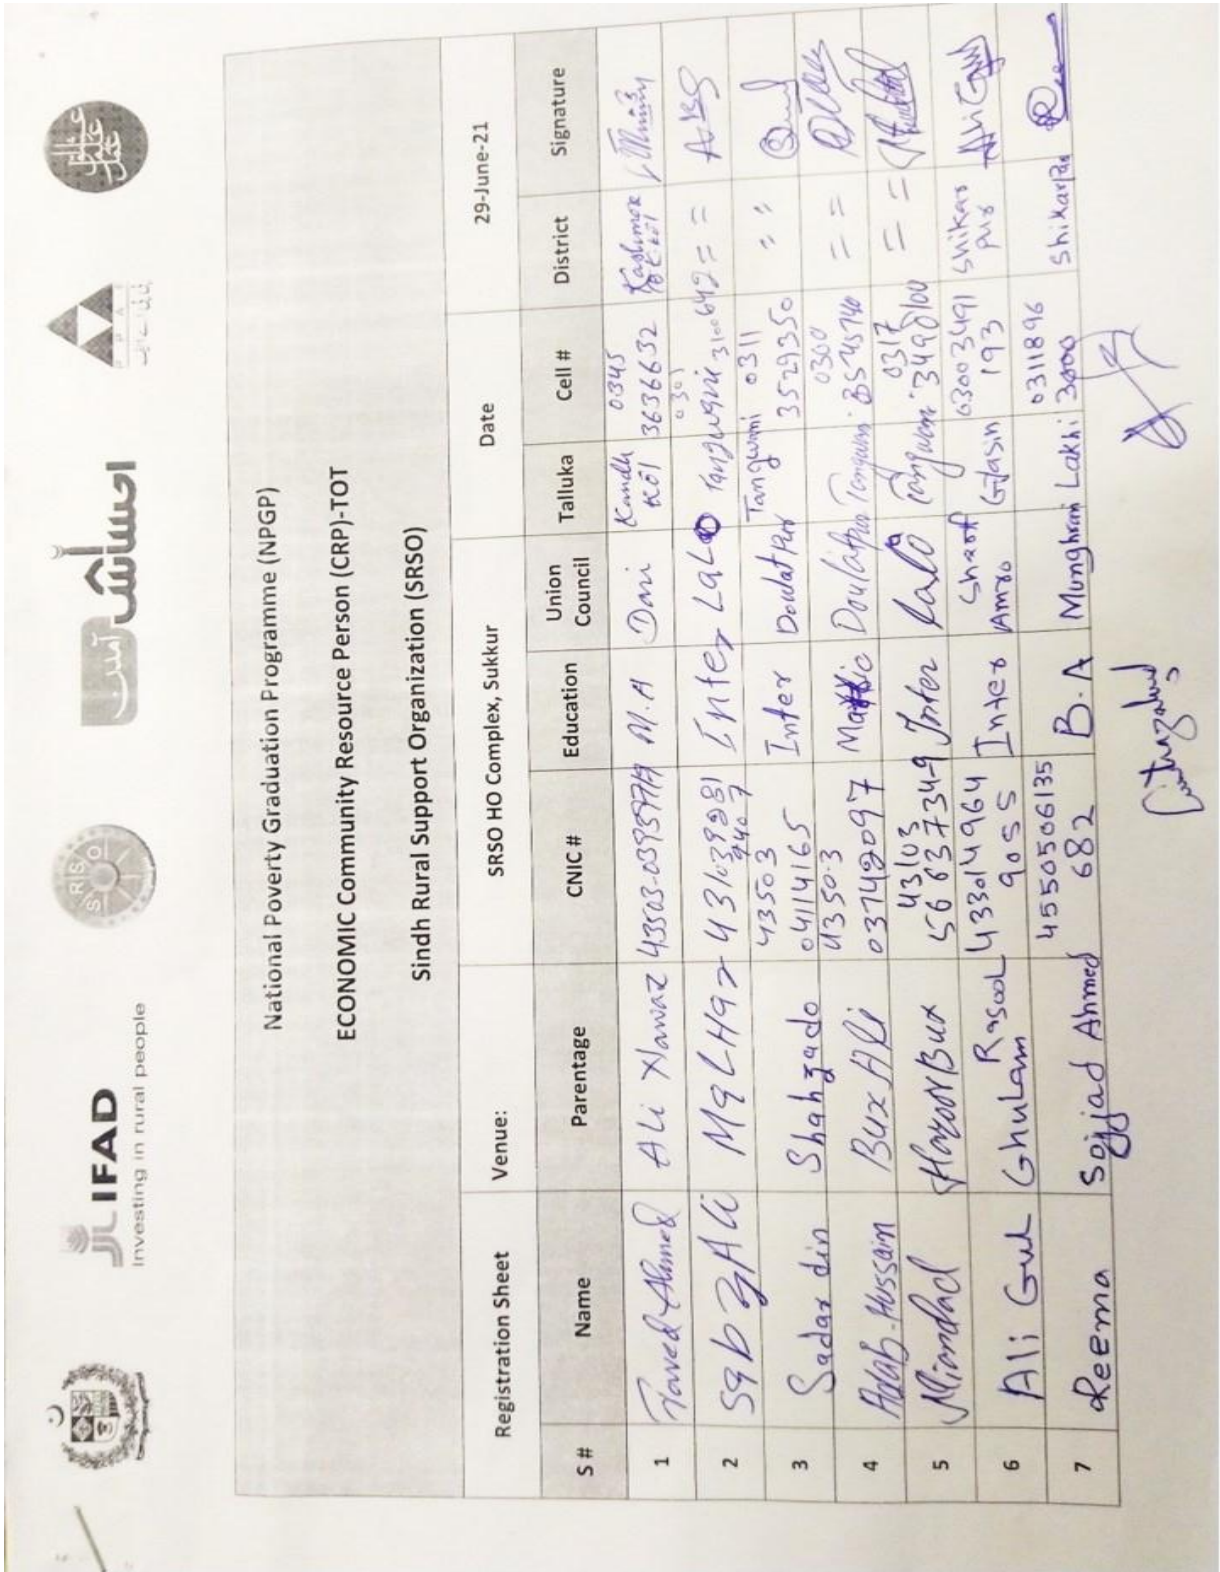 JLIFAD
Investing in rural people
SRSO
احساس آمدن
PPAF
National Poverty Graduation Programme (NPGP)
ECONOMIC Community Resource Person (CRP)-TOT
Sindh Rural Support Organization (SRSO)
Registration Sheet Venue: SRSO HO Complex, Sukkur Date 29-June-21
S # Name Parentage CNIC # Education Union Council Talluka Cell # District Signature
1 Javed Ahmed Ali Nawaz M.A Dari Kandh Kot 0345 3636632 Kashmore
2 Sabz Ali Inter Lalo Tangwani = =
3 Sadar din Shahzado 43503 04114165 Inter Doulat Pur Tangwani 0311 3529350 " "
4 Hussain Bux Ali 43503 Matric Doulatpur Tangwani 0300 = =
5 Miandad Hazor Bux 43103 5663734-9 Inter Lalo Tangwani 0317 = =
6 Ali Gul Ghulam Rasool 433014964 9055 Inter Amro 03003491 193 Shikar pur Ali Gul
7 Reema Sajjad Ahmed 45505066135 682 B.A Munghrani Lakhi 0311896 Shikarpur